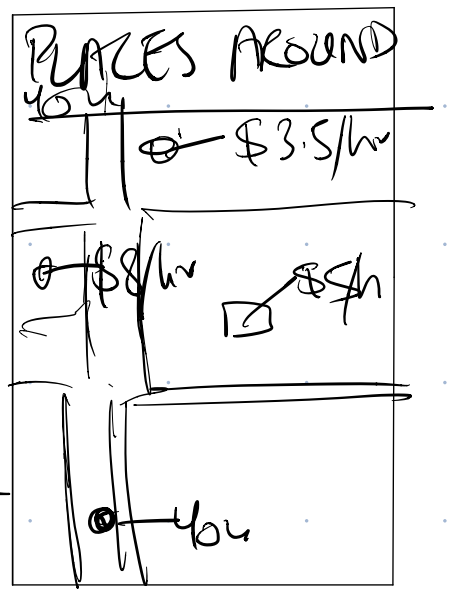 PLACES AROUND
YOU
$3.5/hr
$8/hr
$5/h
You